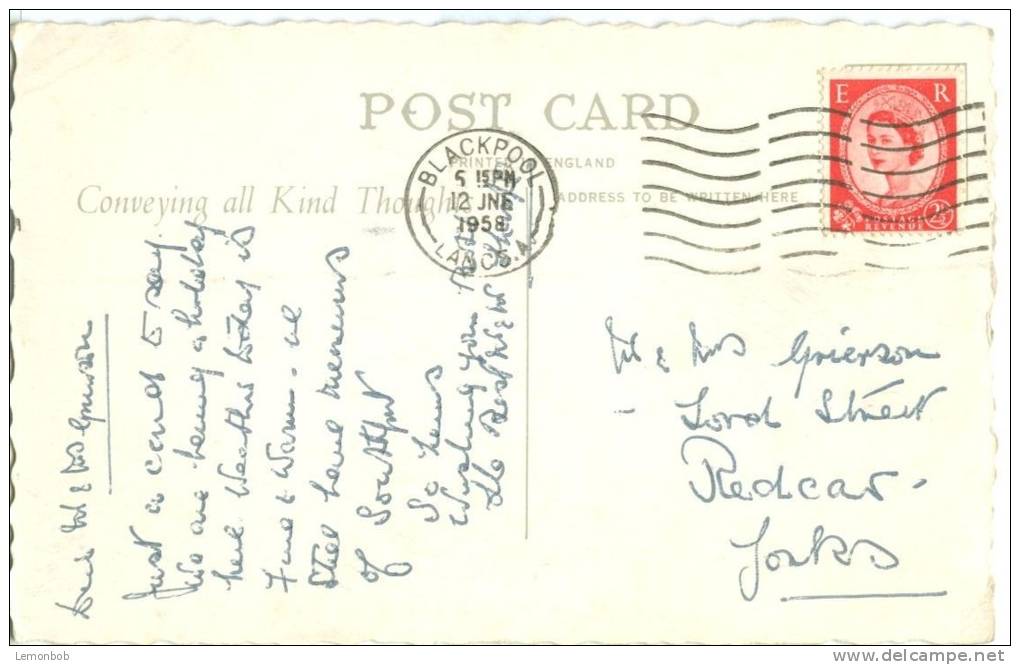 POST CARD
PRINTED ENGLAND
Conveying all Kind Though
ADDRESS TO BE WRITTEN HERE
BLACKPOOL
5 15 PM
12 JNE
1958
LANCS. A
E R
REVENUE
2½
Dear Mr & Mrs Grierson
Just a card to say
We are having a holiday
here Weather today is
Fine & Warm - we
Still have memories
of Southport
So hows
Wishing you
the Best Mr & Mrs
Mr & Mrs Grierson
- Lord Street
Redcar -
Yorks
Lemonbob
delcampe.net